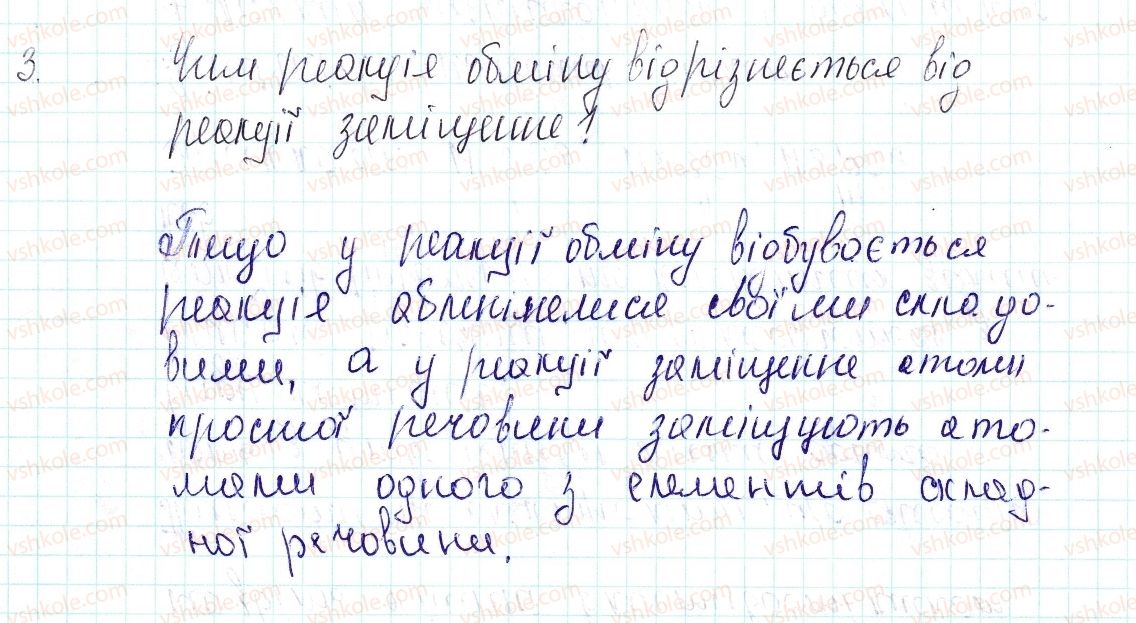 3. Чим реакція обміну відрізняється від
реакції заміщення?
Якщо у реакції обміну відбувається
реакція обмінялися своїми складо-
вими, а у реакції заміщення атоми
простої речовини заміщують ато-
мами одного з елементів склад-
ної речовини.